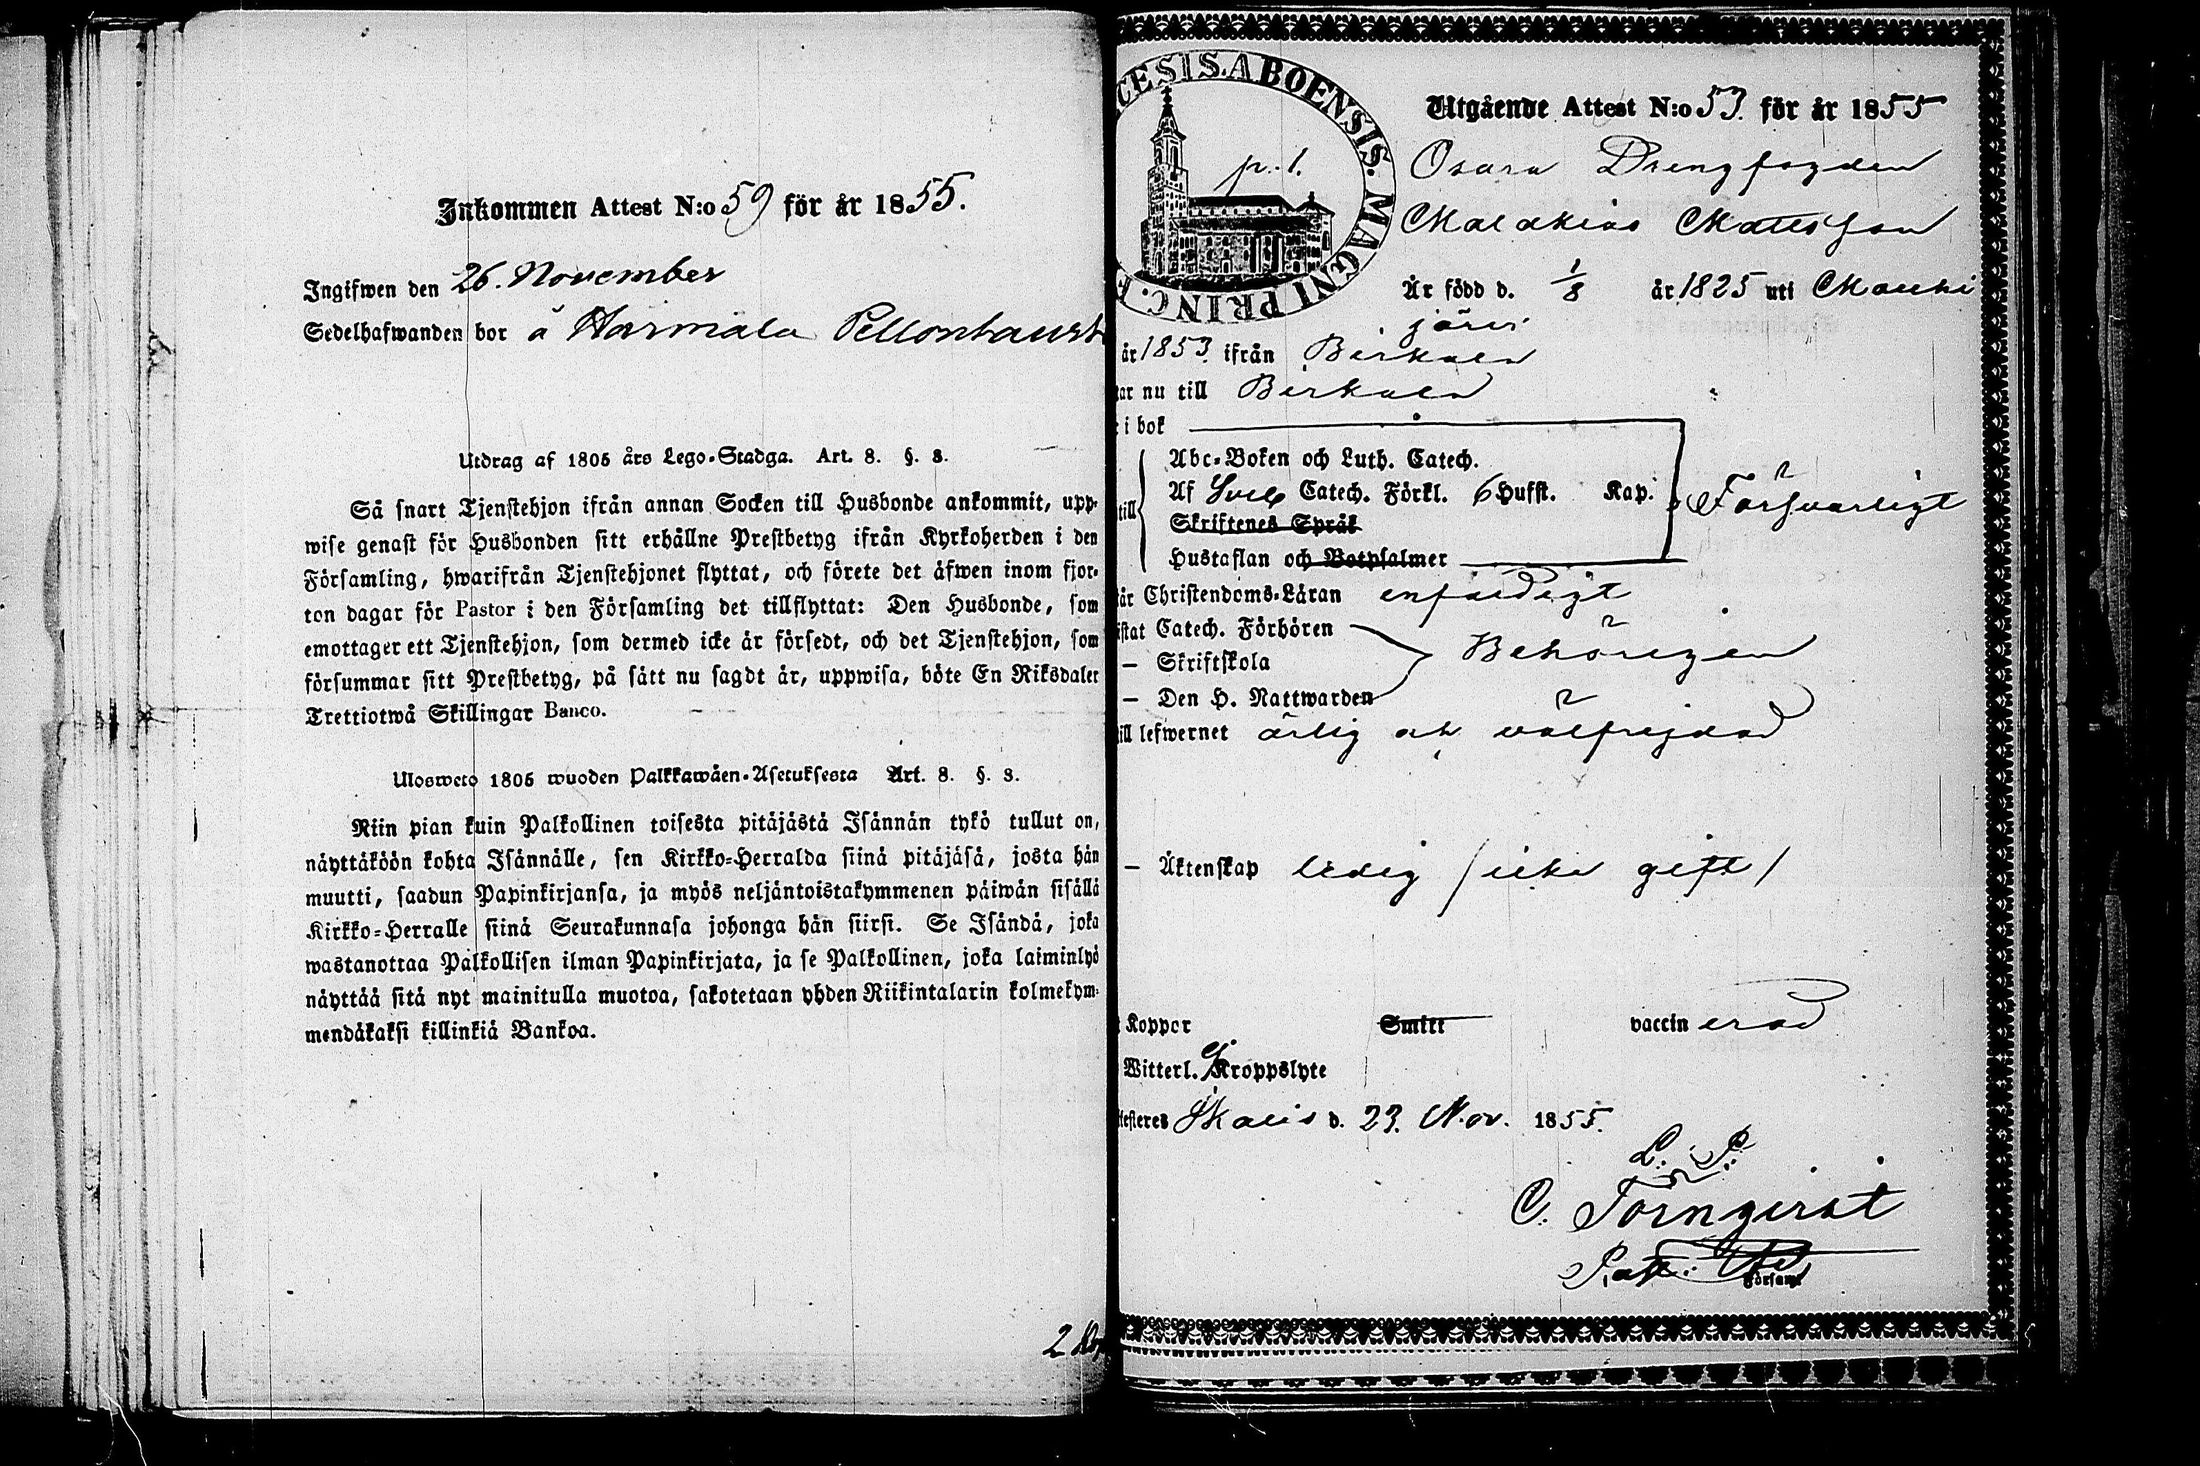 Inkommen Attest N:o 59 för år 1855.
Ingifwen den 26. November
Sedelhafwanden bor å Harmala
Utdrag af 1805 års Lego-Stadga. Art. 8. §. 8.
Så snart Tjenstehjon ifrån annan Socken till Husbonde ankommit, upp-
wise genast för Husbonden sitt erhållne Prestbetyg ifrån Kyrkoherden i den
Församling, hwarifrån Tjenstehjonet flyttat, och förete det äfwen inom fjor-
ton dagar för Pastor i den Församling det tillflyttat: Den Husbonde, som
emottager ett Tjenstehjon, som dermed icke är försedt, och det Tjenstehjon, som
försummar sitt Prestbetyg, på sätt nu sagdt är, uppwisa, böte En Riksdaler
Trettiotwå Skillingar Banco.
Ulosweto 1805 wuoden Palkkawäen-Asetuksesta Art. 8. §. 8.
Niin pian kuin Palkollinen toisesta pitäjästä Isännän tykö tullut on,
näyttäköön kohta Isännälle, sen Kirkko-Herralda siinä pitäjäsä, josta hän
muutti, saadun Papinkirjansa, ja myös neljäntoistakymmenen päiwän sisällä
Kirkko-Herralle siinä Seurakunnasa johonga hän siirsi. Se Isändä, joka
wastanottaa Palkollisen ilman Papinkirjata, ja se Palkollinen, joka laiminlyö
näyttää sitä nyt mainitulla muotoa, sakotetaan yhden Riikintalarin kolmekym-
mendäkaksi killinkiä Bankoa.
2
CESIS. ABOENSIS. MAGNI PRINC. F
p. 1.
Utgående Attest N:o 53. för år 1855
Osara Drengfogden
Malakias Mattsson
Är född d. 1/8 år 1825 uti Mouhi
järvi
år 1853 ifrån Birkala
ar nu till Birkala
i bok
Abc-Boken och Luth. Catech.
till Af Sveb Catech. Förkl. 6 Hufst. Kap. Försvarligt
Skriftenes Språk
Hustaflan och Botpsalmer
är Christendoms-Läran enfaldigt
istat Catech. Förhören
— Skriftskola Behörigen
— Den H. Nattwarden
till lefwernet ärlig och välfrejdad
— Äktenskap ledig (icke gift)
Koppor Smitt vaccinerad
Witterl. Ej Kroppslyte
testeres Ikalis d. 23. Nov. 1855.
L. S.
C. Törnqvist
Församl